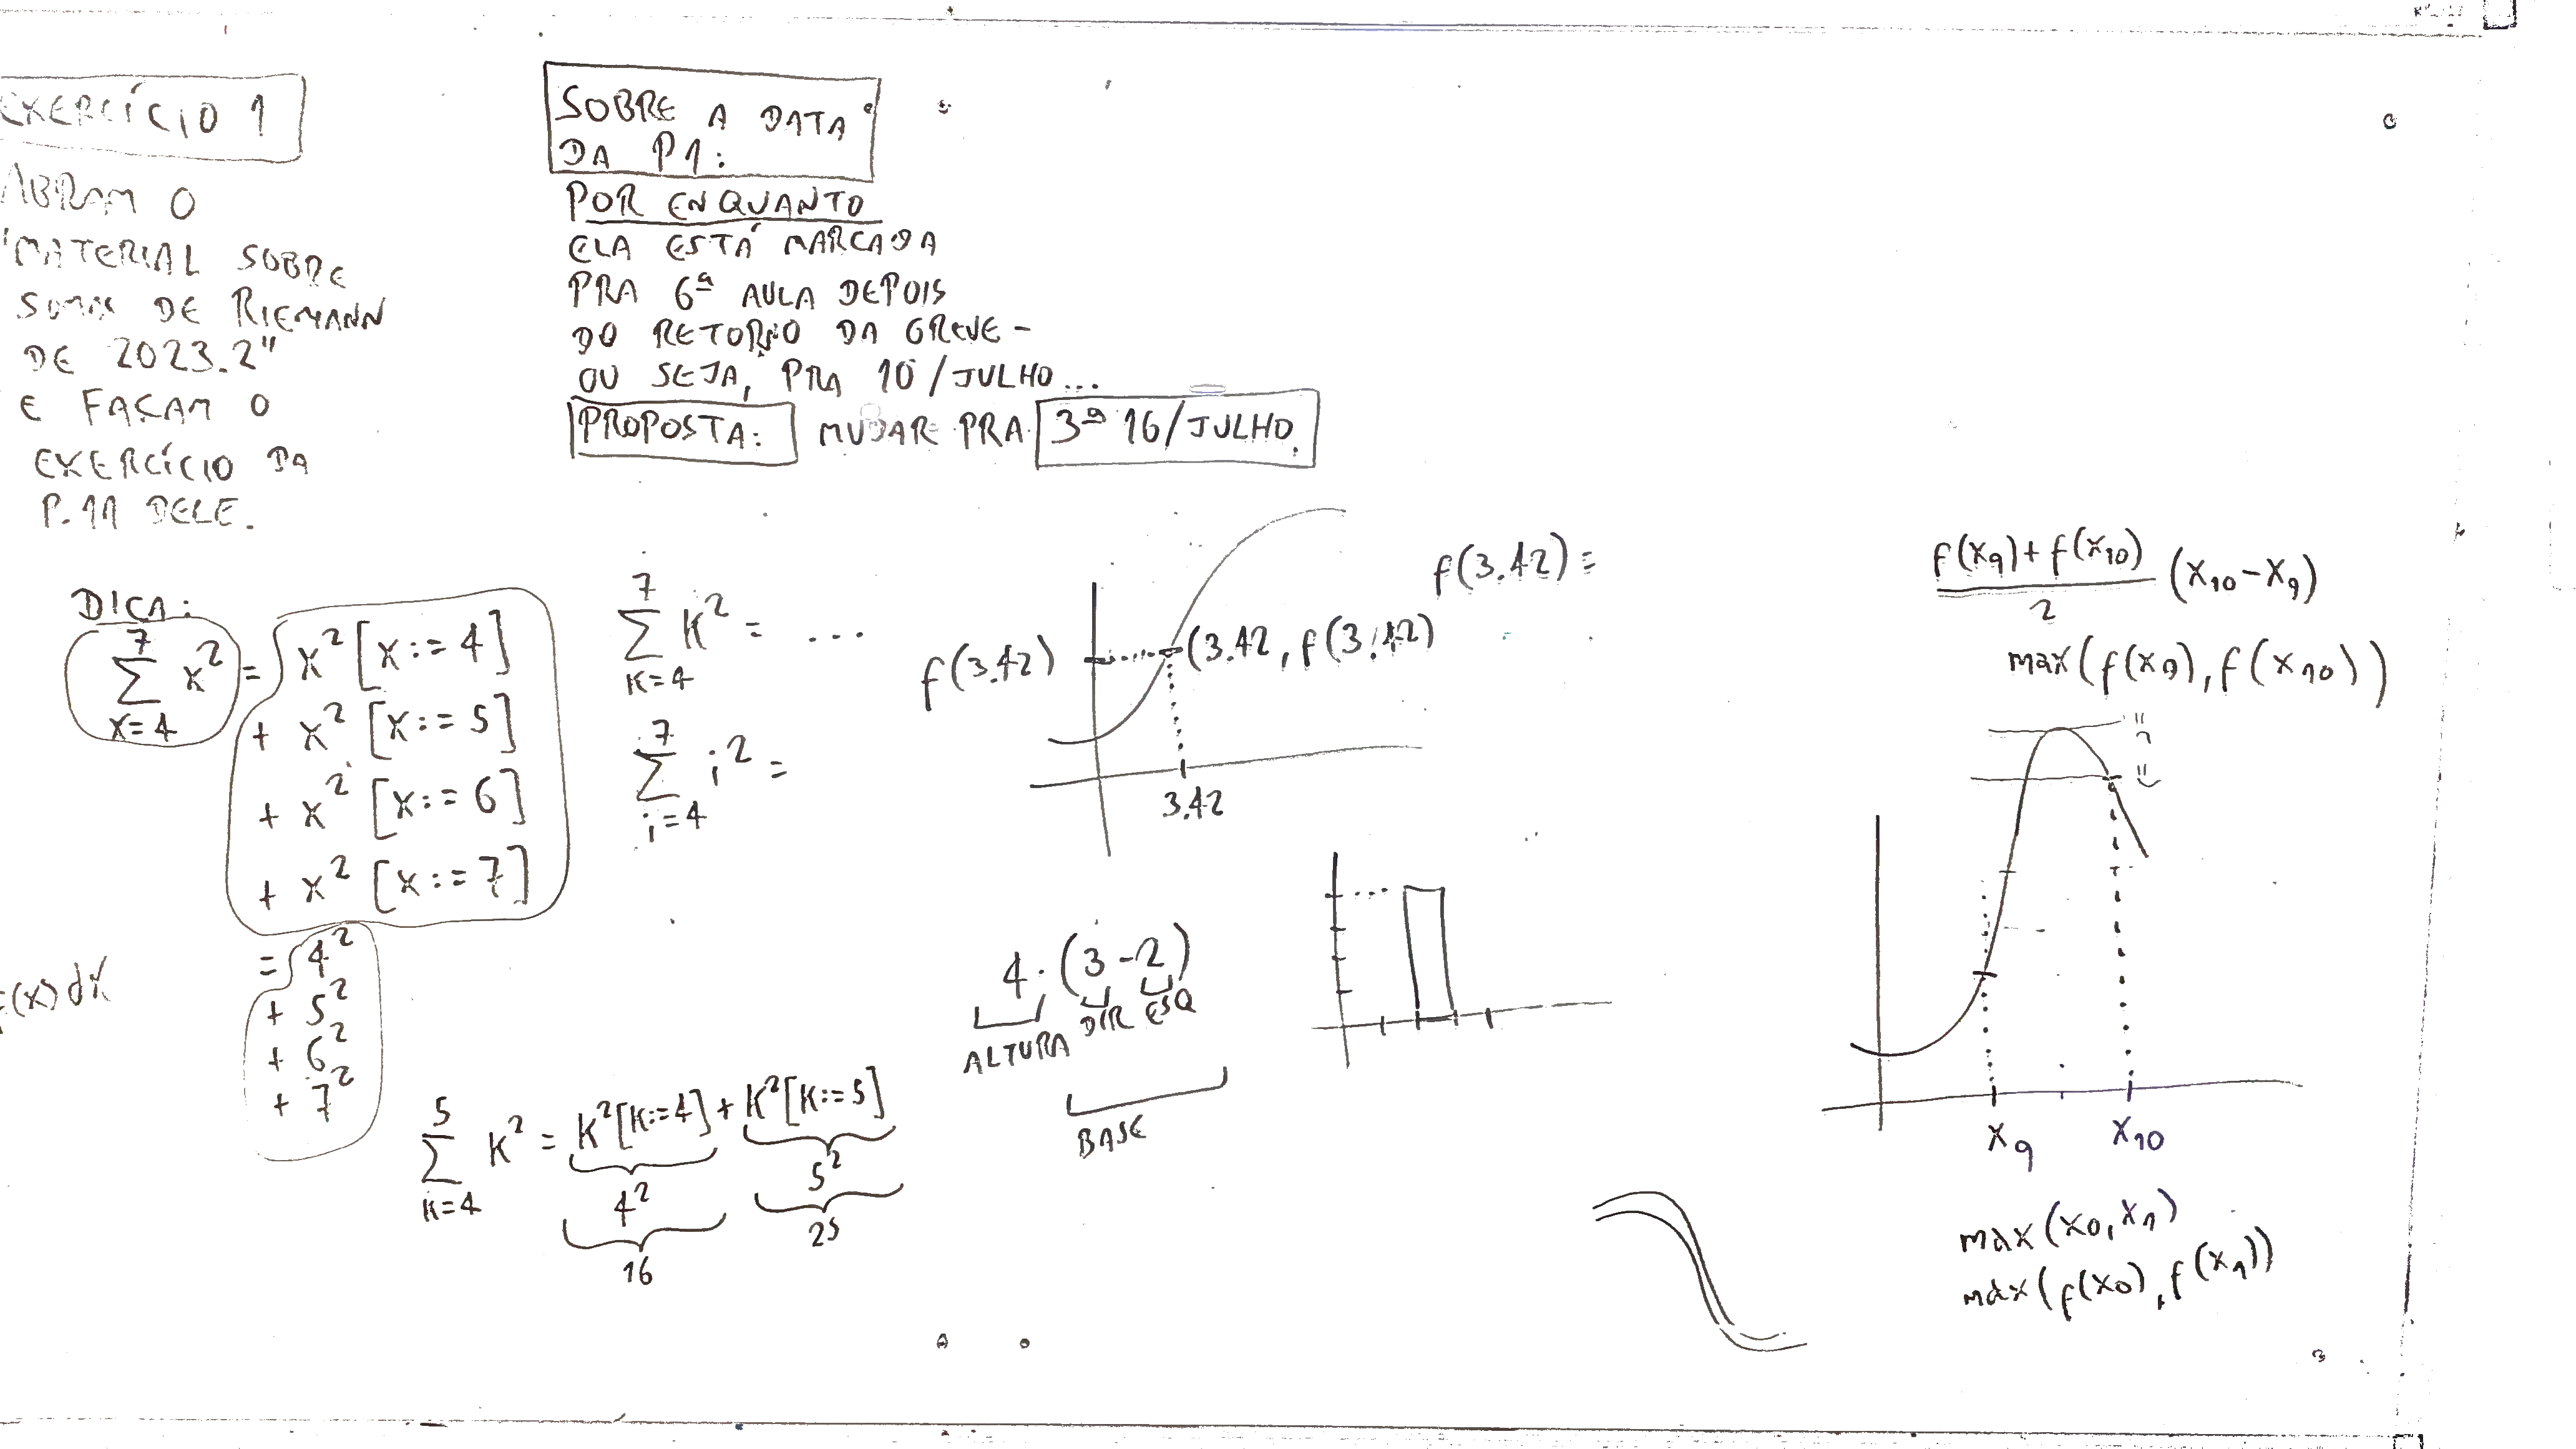 EXERCÍCIO 1
ABRAM O
"MATERIAL SOBRE
SOMAS DE RIEMANN
DE 2023.2"
E FAÇAM O
EXERCÍCIO DA
P.11 DELE.
SOBRE A DATA
DA P1:
POR ENQUANTO
ELA ESTÁ MARCADA
PRA 6ª AULA DEPOIS
DO RETORNO DA GREVE –
OU SEJA, PRA 10/JULHO...
PROPOSTA: MUDAR PRA 3ª 16/JULHO.
DICA:
∑_{x=4}^{7} x² = x²[x:=4]
+ x²[x:=5]
+ x²[x:=6]
+ x²[x:=7]
= 4²
+ 5²
+ 6²
+ 7²
(x)dx
∑_{k=4}^{7} k² = ...
∑_{i=4}^{7} i² =
∑_{k=4}^{5} k² = k²[k:=4] + k²[k:=5]
4² 5²
16 25
f(3.42) =
f(3.42) (3.42, f(3.42)
3.42
4·(3-2)
ALTURA DIR ESQ
BASE
f(x₉)+f(x₁₀)
2
(x₁₀-x₉)
max(f(x₉), f(x₁₀))
x₉ x₁₀
max(x₀, x₁)
max(f(x₀), f(x₁))